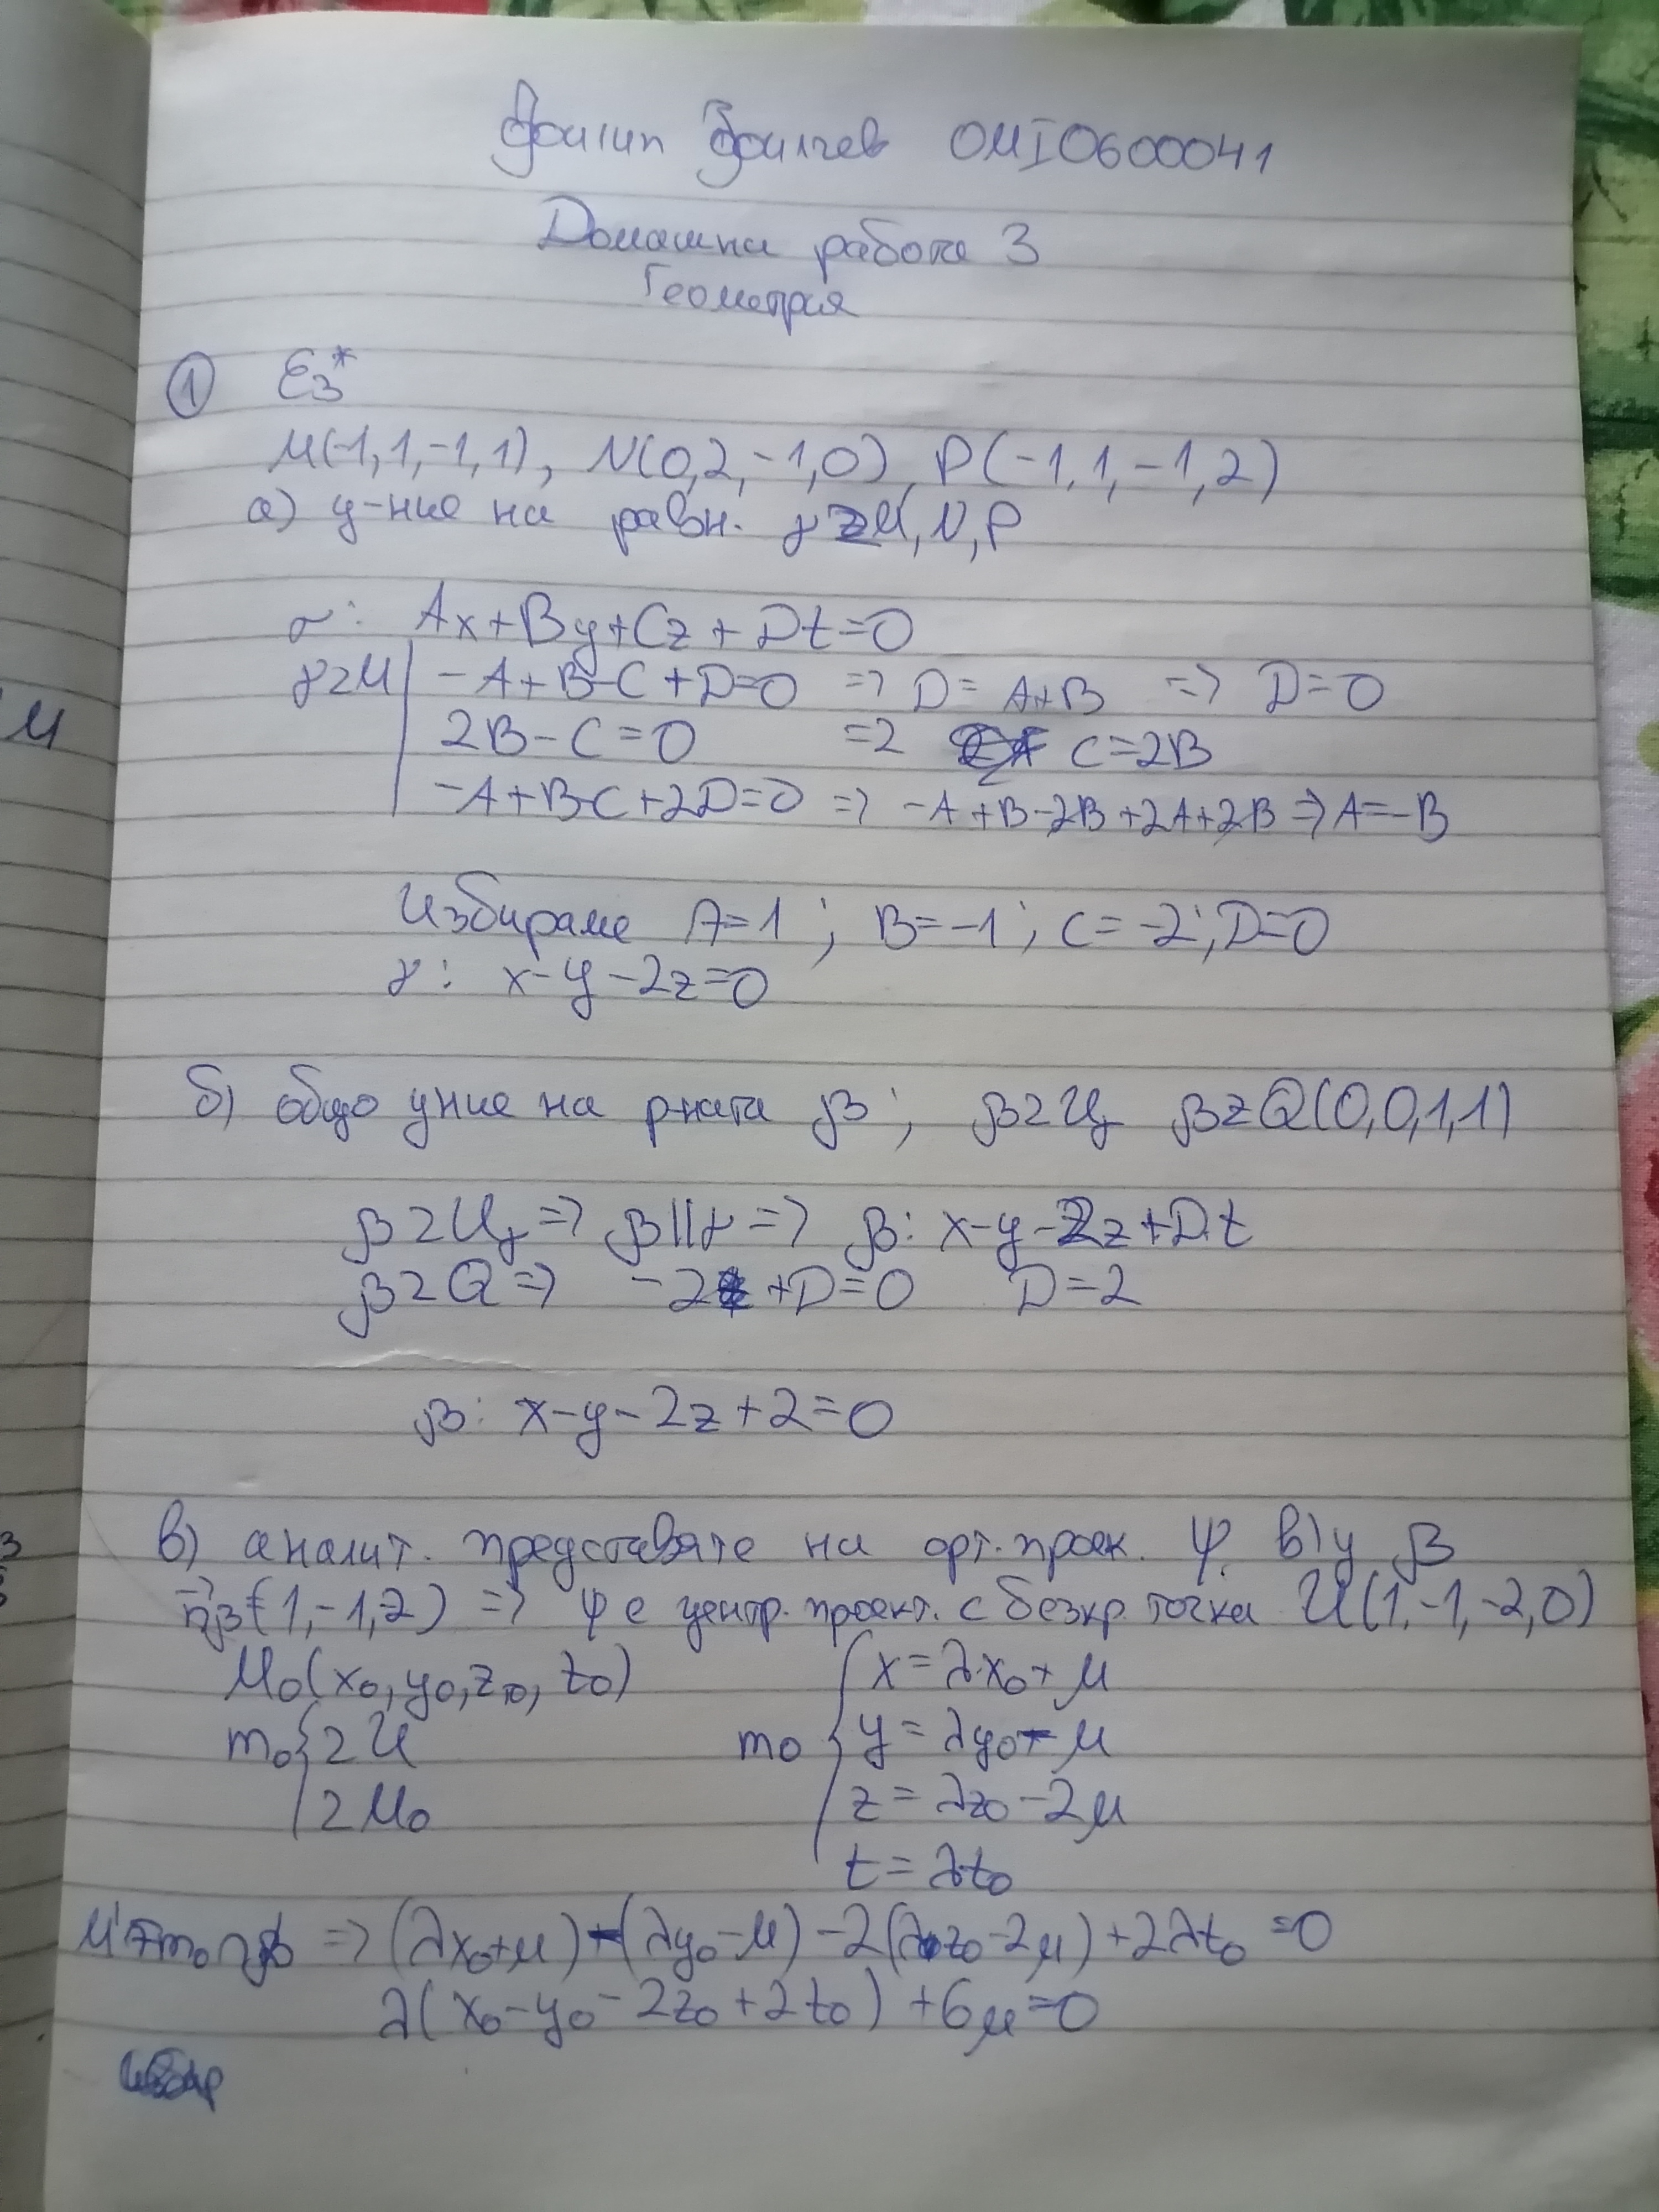 Филип Филчев 0MI0600041
Домашна работа 3
Геометрия
① E3*
M(-1,1,-1,1), N(0,2,-1,0), P(-1,1,-1,2)
а) у-ние на равн. γ z M, N, P
Ax+By+Cz+Dt=0
γzM | -A+B-C+D=0 => D= A+B => D=0
2B-C=0 =2 C=2B
-A+B-C+2D=0 => -A+B-2B+2A+2B => A=-B
Избираме A=1; B=-1; C=-2; D=0
γ: x-y-2z=0
б) общо уние на р-ната β; βzUγ βzQ(0,0,1,1)
βzUγ => β||γ => β: x-y-2z+Dt
βzQ => -2 +D=0 D=2
β: x-y-2z+2=0
в) аналит. представяте на орт. проек. ψ в/у β
nβ(1,-1,2) => ψ е центр. проект. с безкр. точка U(1,-1,-2,0)
M0(x0,y0,z0,t0) x=λx0+μ
m0 { zU m0 { y=λy0-μ
zM0 z=λz0-2μ
t=λt0
M'=m0∩β => (λx0+μ)-(λy0-μ)-2(λz0-2μ)+2λt0=0
λ(x0-y0-2z0+2t0)+6μ=0